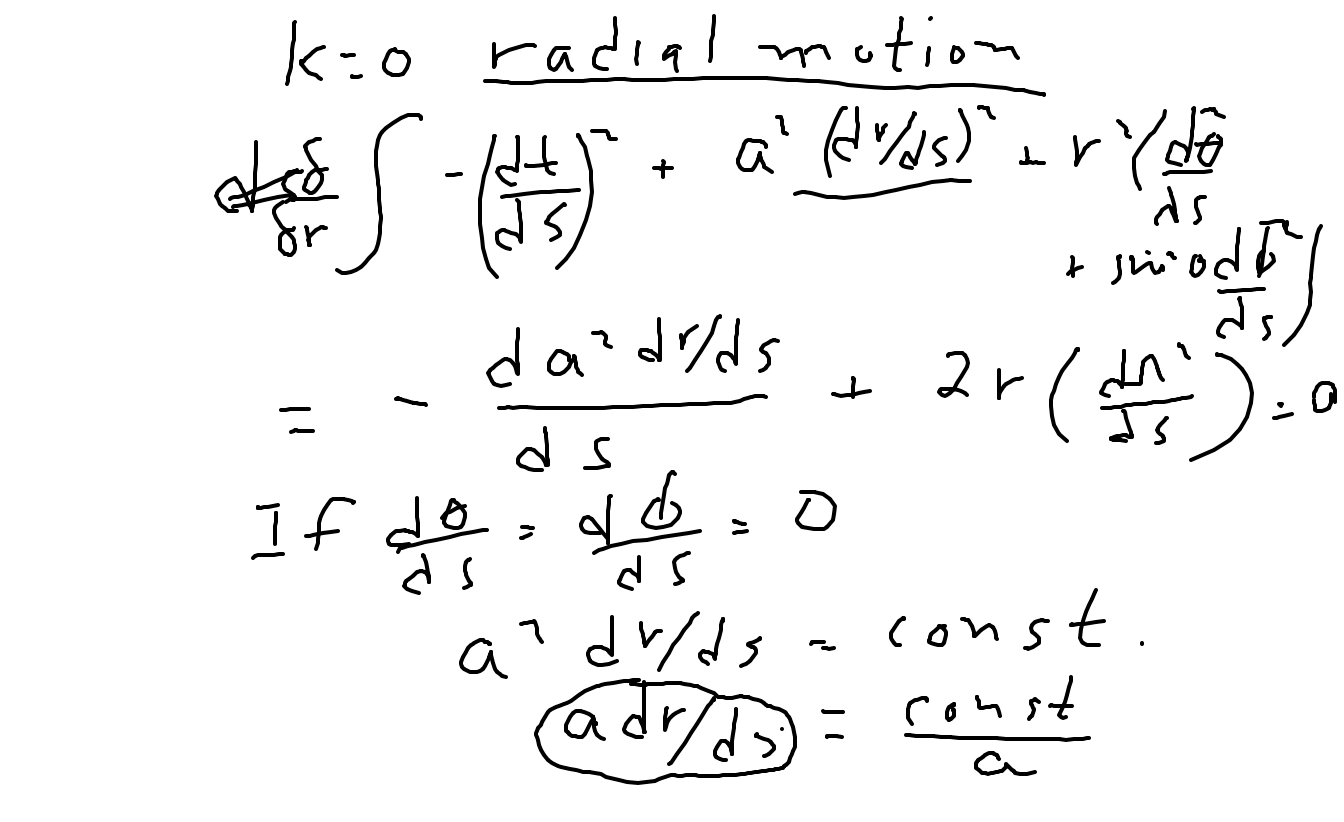 k=0 radial motion
δ/δr ∫ -(dt/ds)² + a² (dr/ds)² + r²(dθ²/ds
+ sin²θ dϕ²/ds)
= - d a² dr/ds / ds + 2r (dΩ²/ds) = 0
If dθ/ds = dϕ/ds = 0
a² dr/ds = const.
a dr/ds = const/a